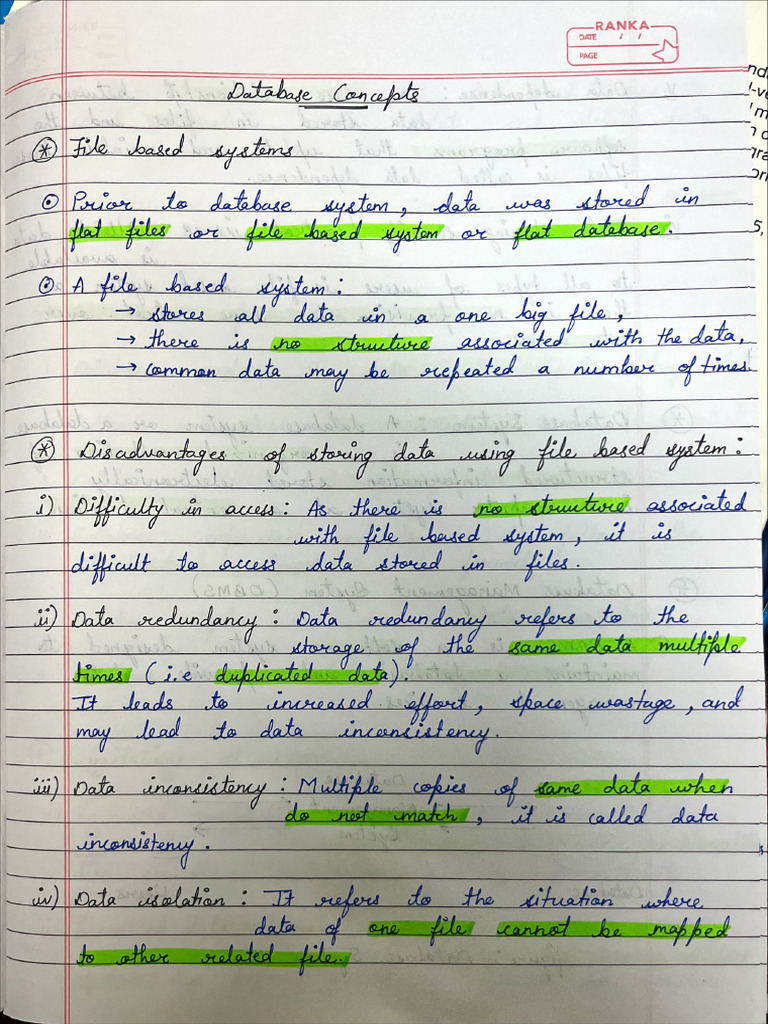 RANKA
DATE / /
PAGE
Database Concepts
* File based systems
Prior to database system, data was stored in
flat files or file based system or flat database.
A file based system:
→ stores all data in a one big file,
→ there is no structure associated with the data,
→ common data may be repeated a number of times.
* Disadvantages of storing data using file based system:
i) Difficulty in access: As there is no structure associated
with file based system, it is
difficult to access data stored in files.
ii) Data redundancy: Data redundancy refers to the
storage of the same data multiple
times (i.e duplicated data).
It leads to increased effort, space wastage, and
may lead to data inconsistency.
iii) Data inconsistency: Multiple copies of same data when
do not match, it is called data
inconsistency.
iv) Data isolation: It refers to the situation where
data of one file cannot be mapped
to other related file.